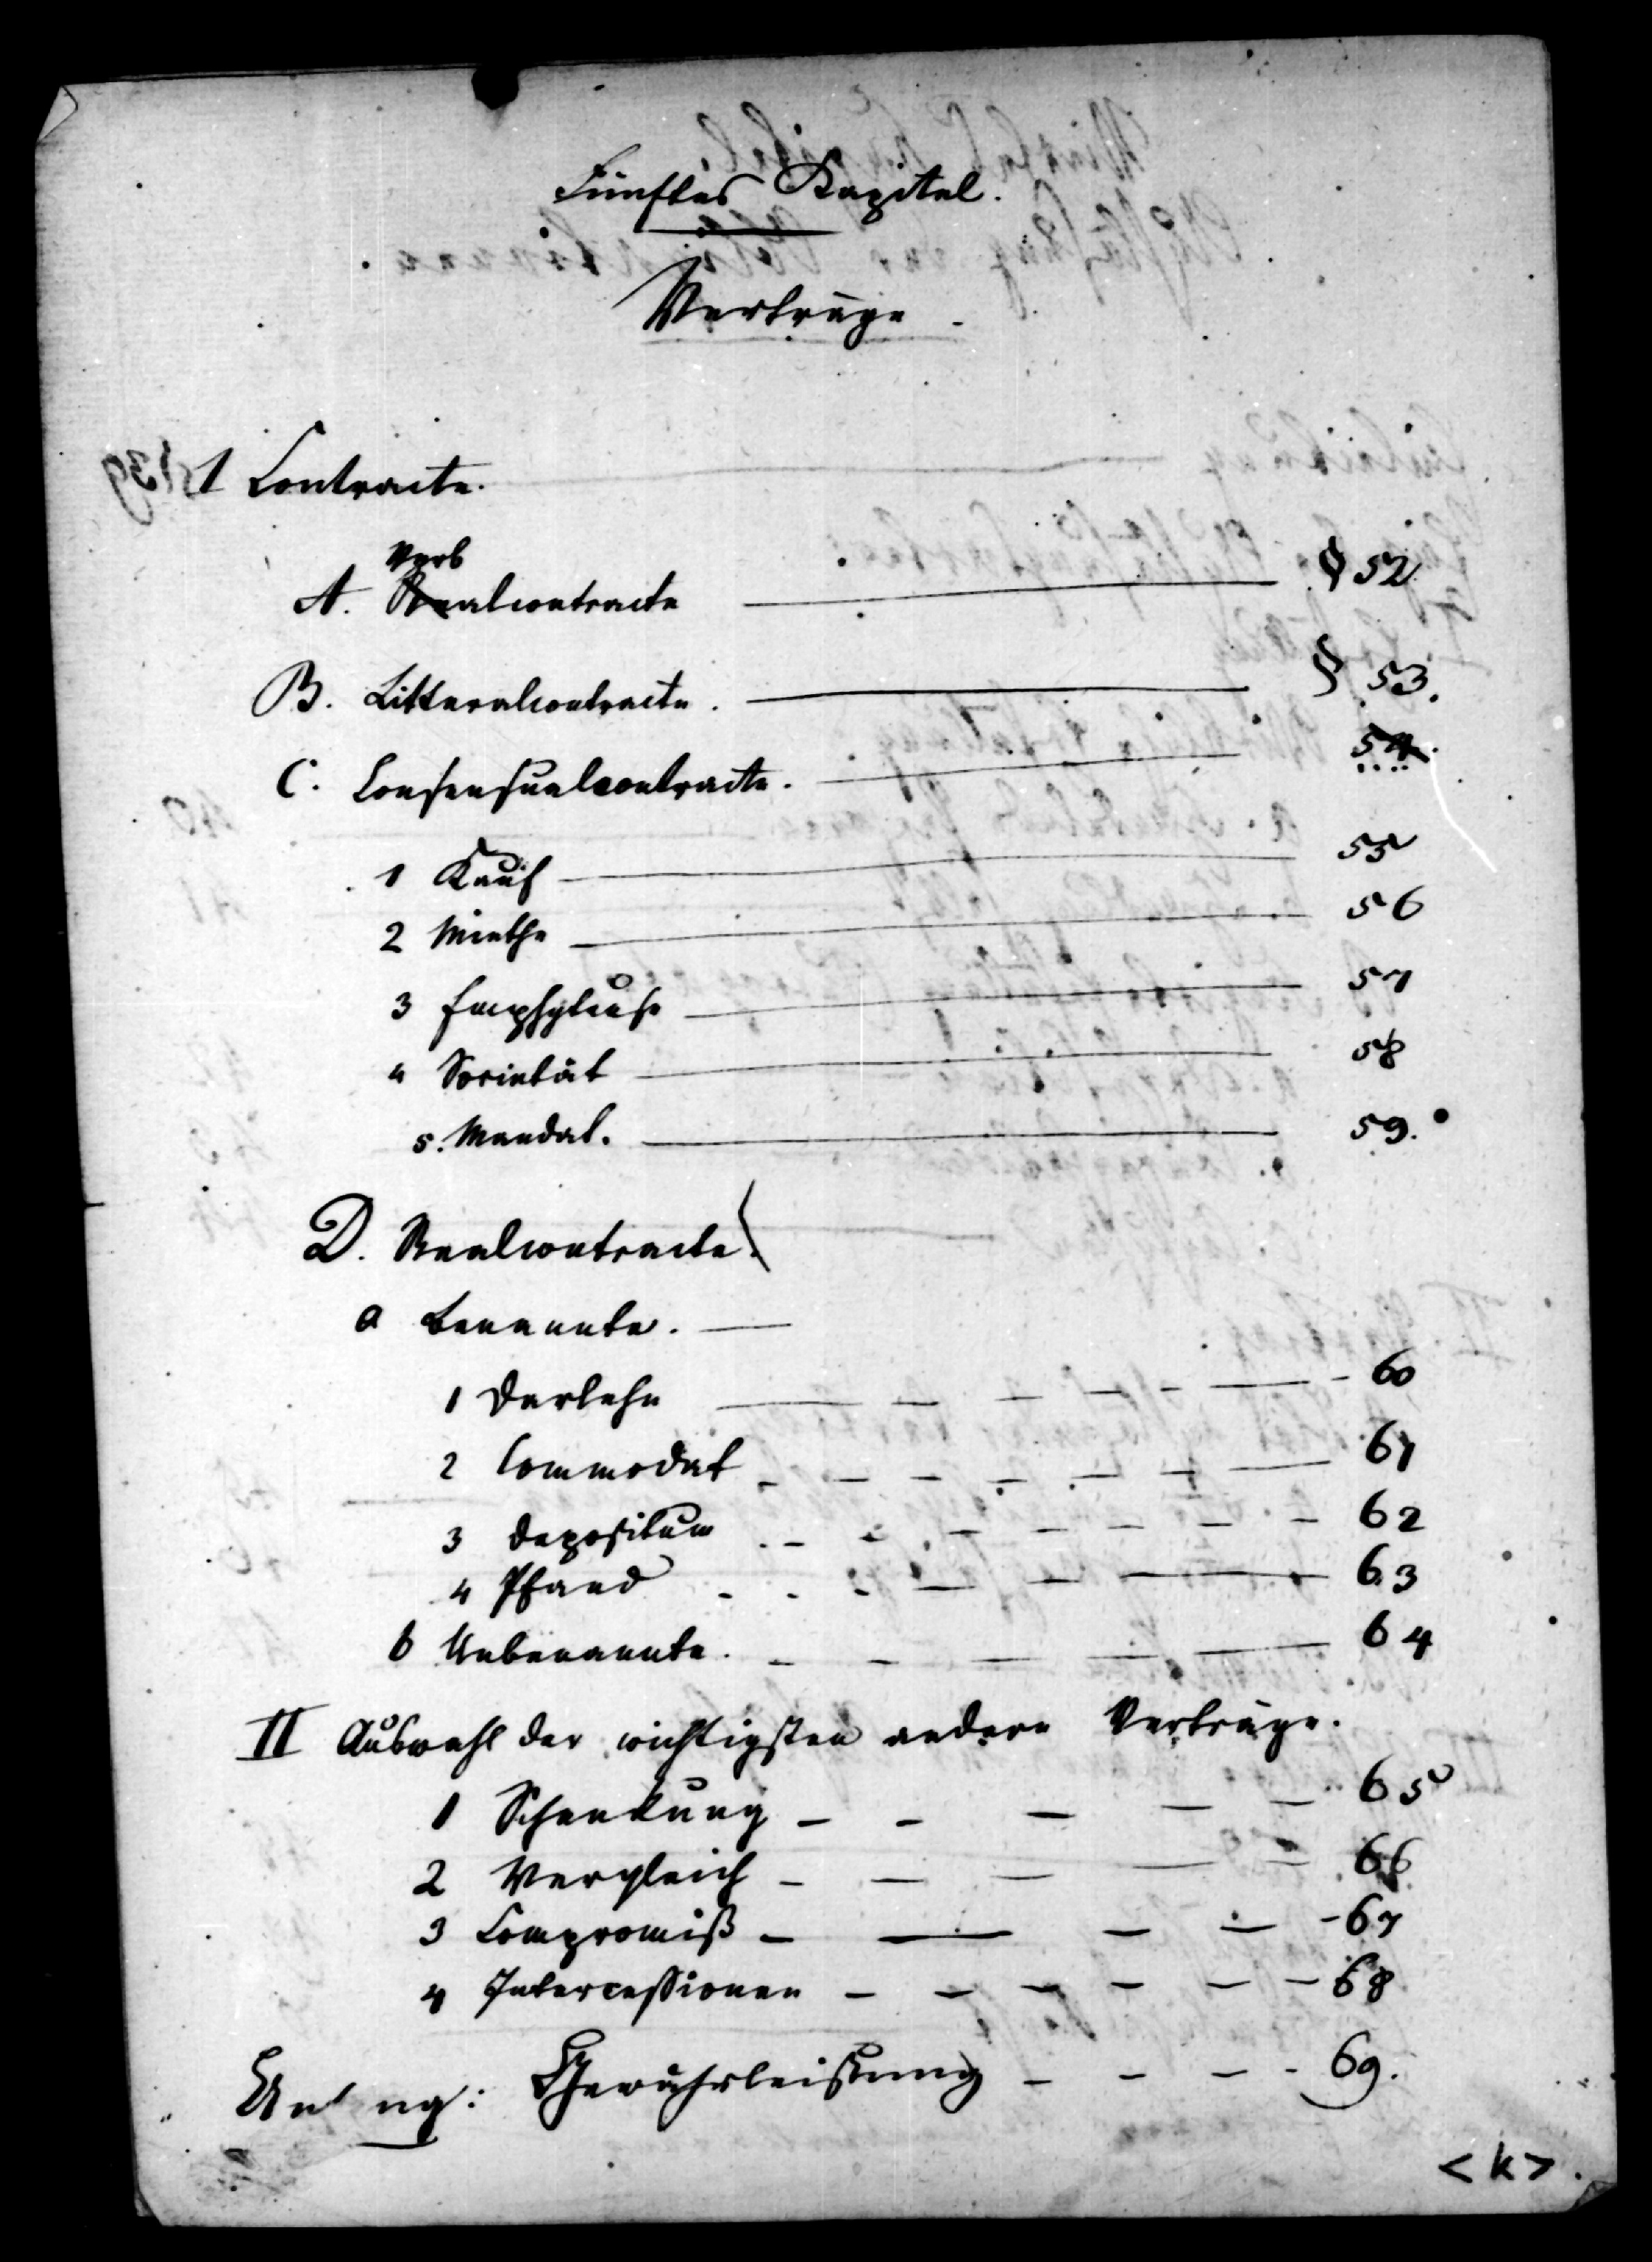 Fünftes Kapitel.
Verträge.
I Contracte.
Verb
A. Realcontracte § 52.
B. Litteralcontracte. § 53.
C. Consensualcontracte. 54.
1 Kauf 55
2 Miethe 56
3 Emphyteuse 57
4 Societät 58
5. Mandat. 59.
D. Realcontracte.
a benannte.
1 Darlehn 60
2 Commodat 61
3 Depositum 62
4 Pfand 63
b Unbenannte. 64
II Auswahl der wichtigsten andern Verträge.
1 Schenkung 65
2 Vergleich 66
3 Compromiß 67
4 Intercessionen 68
Gewährleistung 69.
<k>